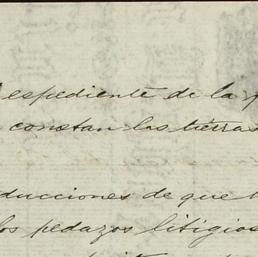 espediente de la
constan las tierras
ducciones de que
los pedazos litigios